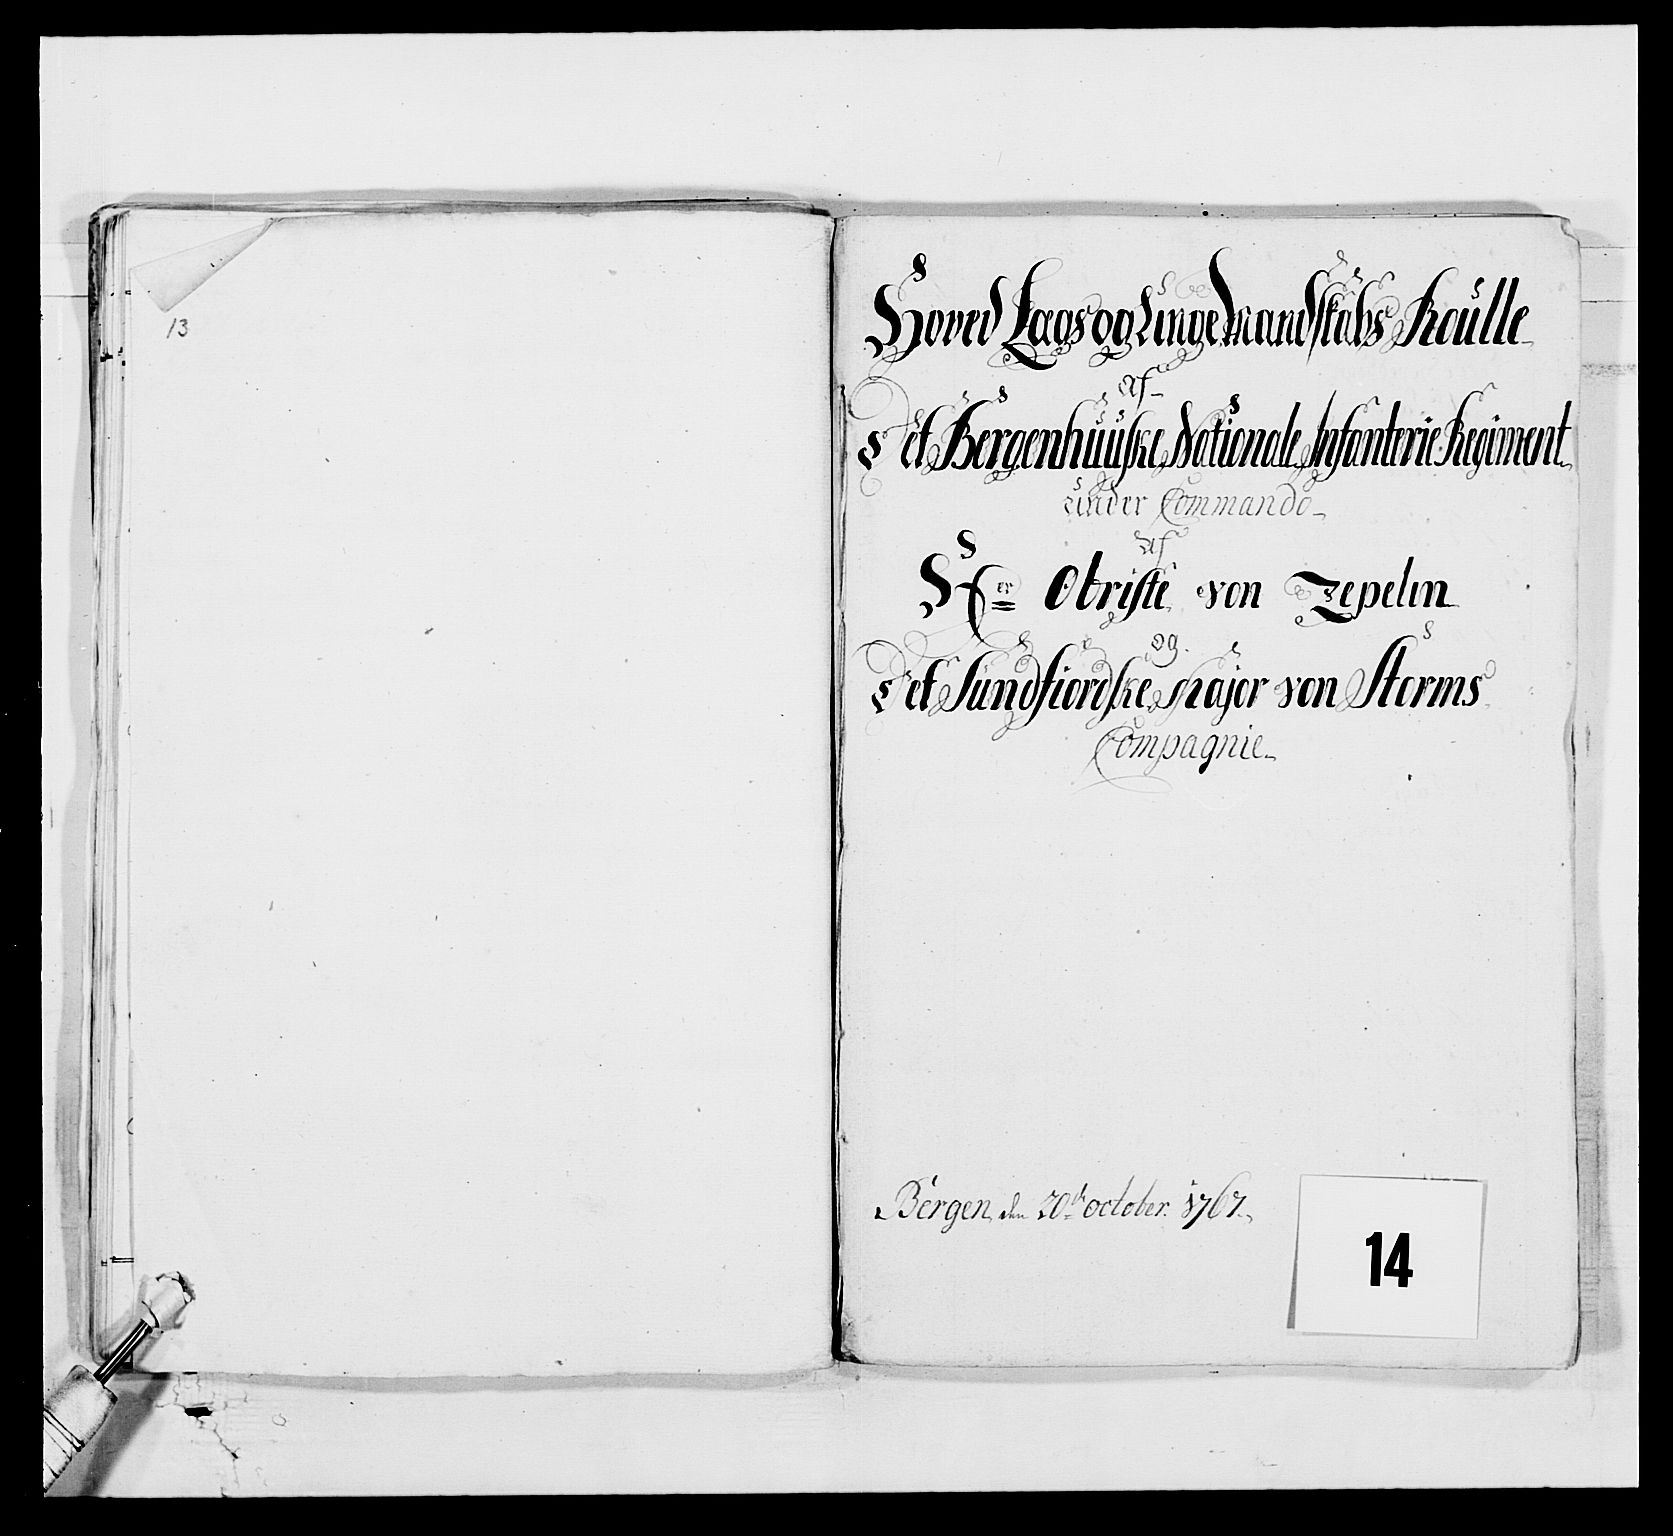 13
Hoved Lags og Unge Mandskabs Roulle
Af
Det Bergenhuuske Nationale Infanterie Regiment
under Commando
Af
Hr Obriste von Zepelin
og
Det Sundfiordske Major von Storms
Compagnie
Bergen den 20de October 1767
14